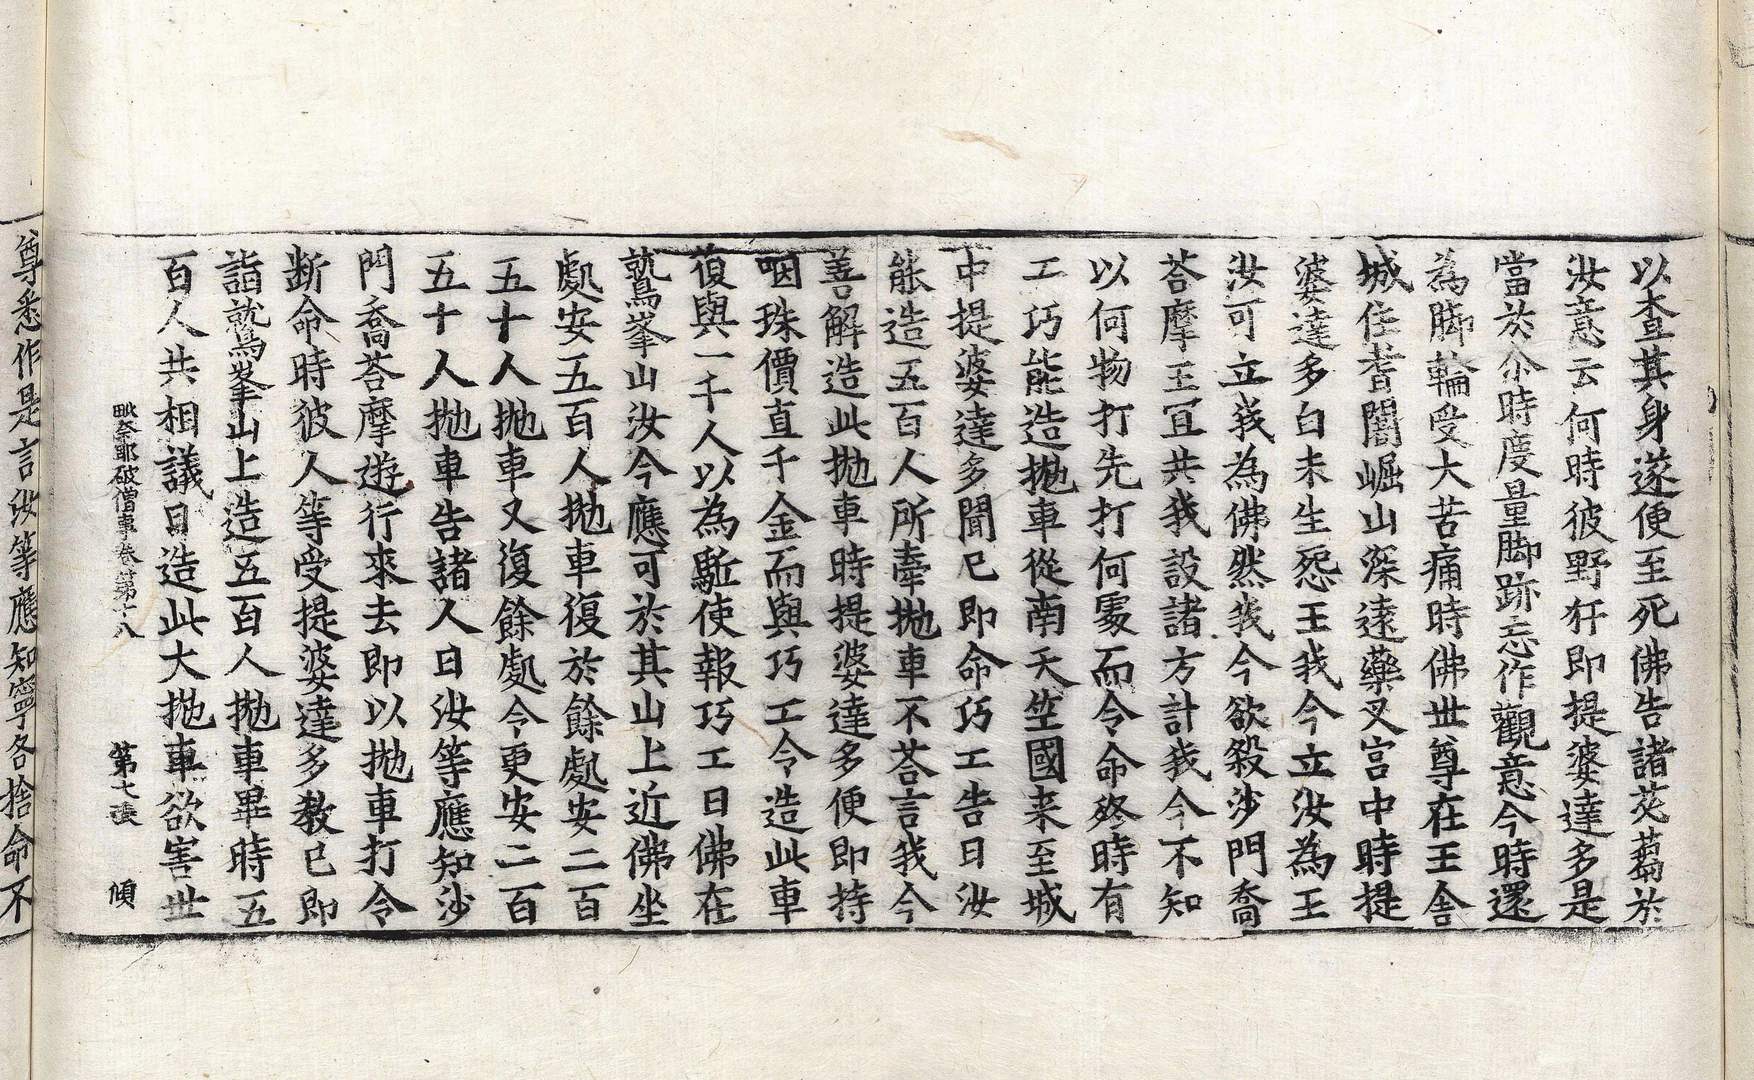 以查其身遂便至死佛告諸苾蒭於
汝意云何時彼野犴即提婆達多是
當於尒時度量脚跡忘作觀意今時還
為脚輪受大苦痛時佛世尊在王舍
城住耆闍崛山深遠藥叉宮中時提
婆達多白未生怨王我今立汝為王
汝可立我為佛然我今欲殺沙門喬
荅摩王冝共我設諸方計我今不知
以何物打先打何處而令命終時有
工巧能造拋車從南天竺國来至城
中提婆達多聞已即命巧工告曰汝
能造五百人所牽拋車不荅言我今
善解造此拋車時提婆達多便即持
咽珠價直千金而與巧工令造此車
復與一千人以為駈使報巧工曰佛在
鷲峯山汝今應可於其山上近佛坐
處安五百人拋車復於餘處安二百
五十人拋車又復餘處令更安二百
五十人拋車告諸人曰汝等應知沙
門喬荅摩遊行來去即以拋車打令
断命時彼人等受提婆達多教已即
詣鷲峯山上造五百人拋車畢時五
百人共相議曰造此大拋車欲害世
毗奈耶破僧事卷第十八 第七張 傾
尊悉作是言汝等應知寧各捨命不